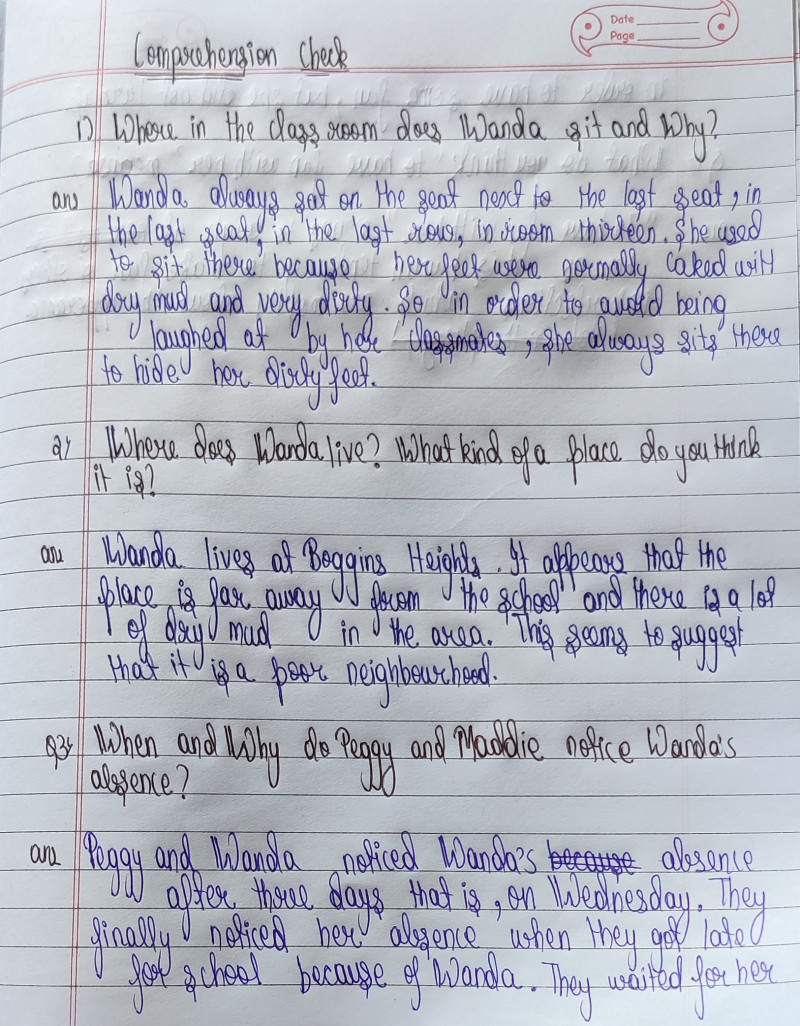 Date
Page
Comprehension Check
1) Where in the class room does Wanda sit and Why?
ans Wanda always sat on the seat next to the last seat, in
the last seat, in the last row, in room thirteen. She used
to sit there because her feet were normally caked with
dry mud and very dirty. So in order to avoid being
laughed at by her classmates, she always sits there
to hide her dirty feet.
2) Where does Wanda live? What kind of a place do you think
it is?
ans Wanda lives at Boggins Heights. It appears that the
place is far away from the school and there is a lot
of dry mud in the area. This seems to suggest
that it is a poor neighbourhood.
Q3) When and Why do Peggy and Maddie notice Wanda's
absence?
ans Peggy and Wanda noticed Wanda's because absence
after three days that is, on Wednesday. They
finally noticed her absence when they got late
for school because of Wanda. They waited for her